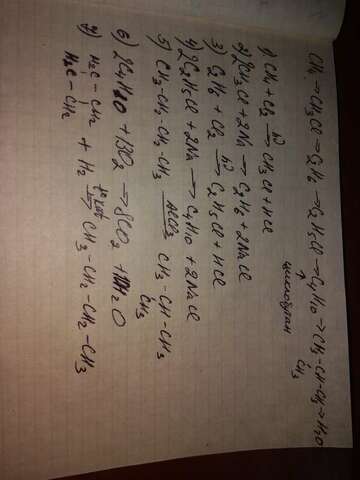 CH₄ → CH₃Cl → C₂H₆ → C₂H₅Cl → C₄H₁₀ → CH₃-CH-CH₃ → H₂O
↑ CH₃
циклобутан
1) CH₄ + Cl₂ hν→ CH₃Cl + HCl
2) 2CH₃Cl + 2Na → C₂H₆ + 2NaCl
3) C₂H₆ + Cl₂ hν→ C₂H₅Cl + HCl
4) 2C₂H₅Cl + 2Na → C₄H₁₀ + 2NaCl
5) CH₃-CH₂-CH₂-CH₃ AlCl₃→ CH₃-CH-CH₃
CH₃
6) 2C₄H₁₀ + 13O₂ → 8CO₂ + 10H₂O
7) H₂C-CH₂ + H₂ t°,кат→ CH₃-CH₂-CH₂-CH₃
H₂C-CH₂